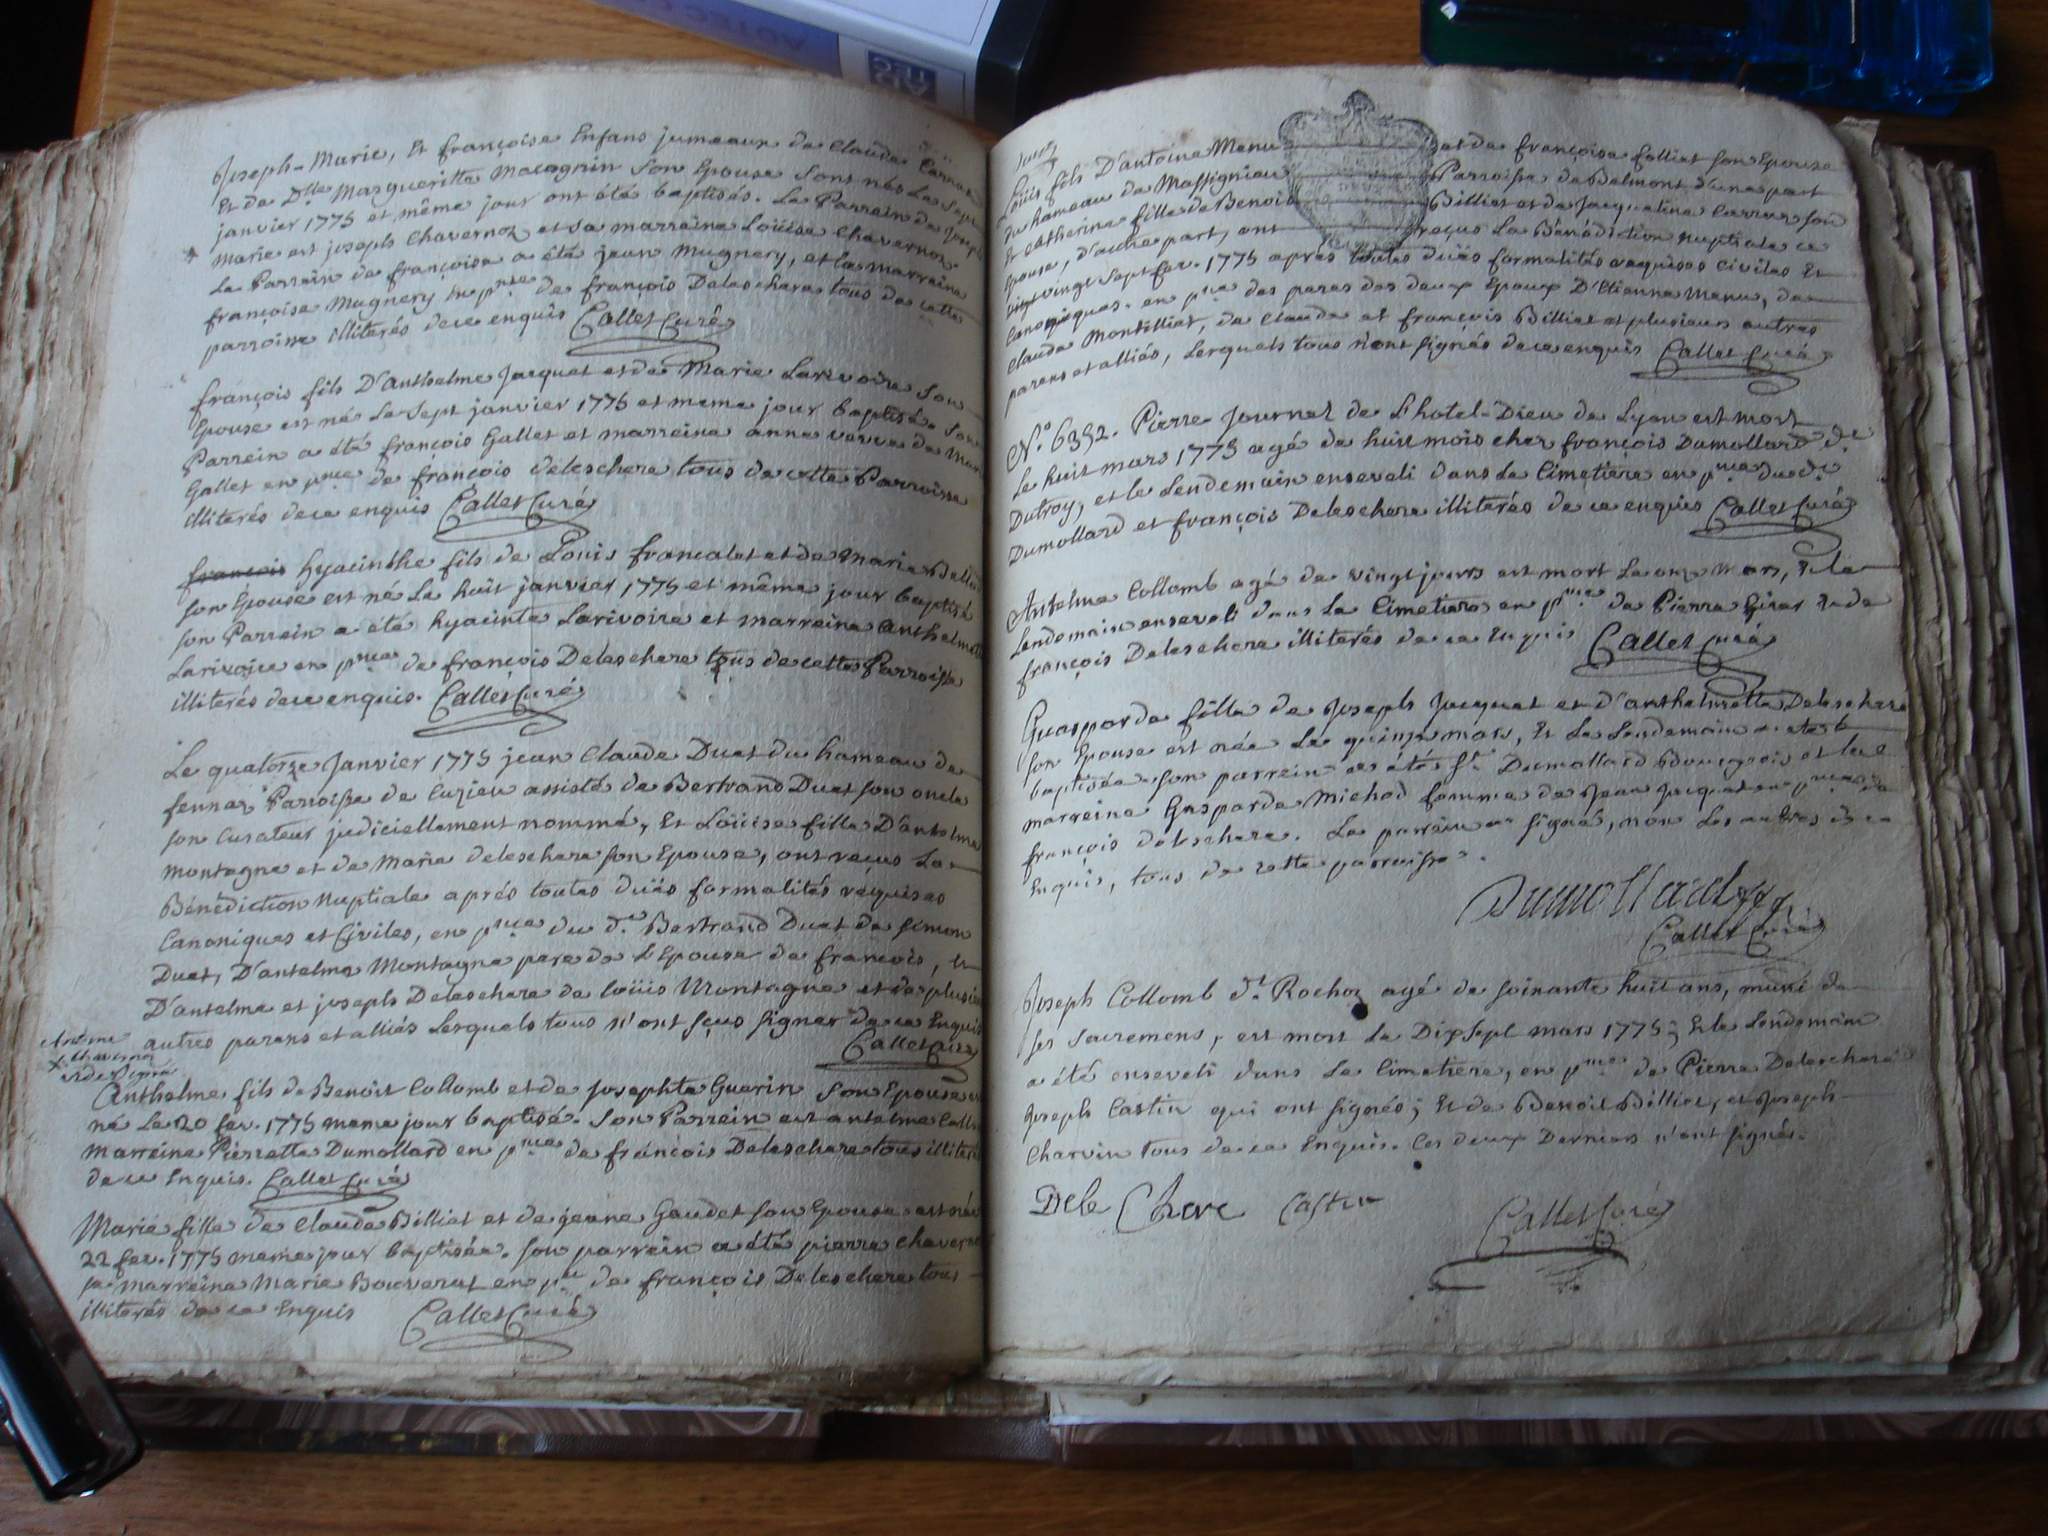 Joseph-Marie, Et françoise Enfans jumeaux de Claude Carrat
Et de Dlle Margueritte Macognin Son Epouse Sont nés Le Sept
janvier 1775 et même jour ont été baptisés. Le Parrein de Joseph
marie est joseph Chavernoz et Sa marreine Loüise Chavernoz.
Le Parrein de françoise a été jean Mugnery, et la marreine
françoise Mugnery En pnce de françois Deleschere tous de cette
parroisse illiterés de ce enquis Callet Curé
françois fils D'anthelme Jacquet et de Marie Larivoire Son
Epouse est né Le Sept janvier 1775 et meme jour baptisé. Son
Parrein a été françois Gallet et marreine anne veuve de
Gallet en pnce de françois deleschere tous de cette Parroisse
illiterés de ce enquis Callet Curé
françois hyacinthe fils de Louis francalet et de Marie
Son Epouse est né Le huit janvier 1775 et même jour baptisé
Son Parrein a été hyacinte Larivoire et marreine anthelmette
Larivoire en pnce de françois Deleschere tous de cette Parroisse
illiterés de ce enquis. Callet Curé
Le quatorze Janvier 1775 jean Claude Duet du hameau de
fennaz Paroisse de Cuzieu assisté de Bertrand Duet Son oncle
Son Curateur judiciellement nommé, Et Loüise fille D'antelme
montagne et de Marie deleschere Son Epouse, ont reçus La
Bénédiction Nuptiale aprés toutes düës formalités requises
Canoniques et Civiles, en pnce du dt Bertrand Duet de Simon
Duet, D'antelme Montagne pere de L'Epouse de françois, et
D'antelme et joseph Deleschere de Loüis Montagne et de plusieurs
autres parens et alliés Lesquels tous n'ont sçus signer de ce Enquis
Callet Curé
Anthelme fils de Benoit Collomb et de Josephte Guerin Son Epouse est
né Le 20 fev. 1775 meme jour baptisé. Son Parrein est antelme
marreine Pierrette Dumollard en pnce de françois Deleschere tous illiterés
de ce Enquis. Callet Curé
Marie fille de Claude Billiet et de jeane Goudet Son Epouse est née
22 fev. 1775 meme jour baptisée. Son parrein a été pierre Chavernoz
Sa marreine Marie Bouvenat en pce de françois Deleschere tous
illiterés de ce Enquis Callet Curé
Loüis fils D'antoine Menu et de françoise folliet Son Epouse
du hameau de Massignieu Parroisse de Belmont d'une part
Et Catherine fille de Benoit Billiet et de Jacqueline Carrier Son
Epouse, d'autre part, ont reçus La Bénédiction Nuptiale ce
vingt Sept fev. 1775 aprés toutes düës formalités requises Civiles Et
Canoniques. en pnce des peres des deux Epoux D'Etienne Menu, de
Claude Montilliet, de Claude et françois Billiet et plusieurs autres
parens et alliés, Lesquels tous n'ont signés de ce enquis Callet Curé
No. 6352. Pierre Journet de L'hotel-Dieu de Lyon est mort
Le huit mars 1775 agé de huit mois chez françois Dumollard dt
Dutroy, et le Lendemain enseveli dans Le Cimetiere en pnce du dt
Dumollard et françois Deleschere illiterés de ce enquis Callet Curé
Antelme Collomb agé de vingt jours est mort Le onze Mars, & le
Lendemain enseveli dans Le Cimetiere en pnce de Pierre Giraz & de
françois Deleschere illiterés de ce Enquis Callet Curé
Guasparde fille de Joseph Jacquet et d'anthelmette Deleschere
Son Epouse est née Le quinze mars, Et Le Lendemain a été
baptisée. Son parrein a été Sr. Dumollard Bourgeois et la
marreine Gasparde Michod femme de Jean Jacquet en pnce de
françois deleschere. Le parrein a signé, non Les autres de ce
Enquis, tous de cette parroisse.
Dumollard
Callet Curé
Joseph Collomb dt. Rochoz agé de soixante huit ans, muni de
Ses Sacremens, est mort Le Dix Sept mars 1775; Et le Lendemain
a été enseveli dans Le Cimetiere, en pnce de Pierre Deleschere
Joseph Castin qui ont signés; Et de Benoit Billiet, et Joseph
Charvin tous de ce Enquis. Ces deux Derniers n'ont signés.
Dele Chere Castin
Callet Curé